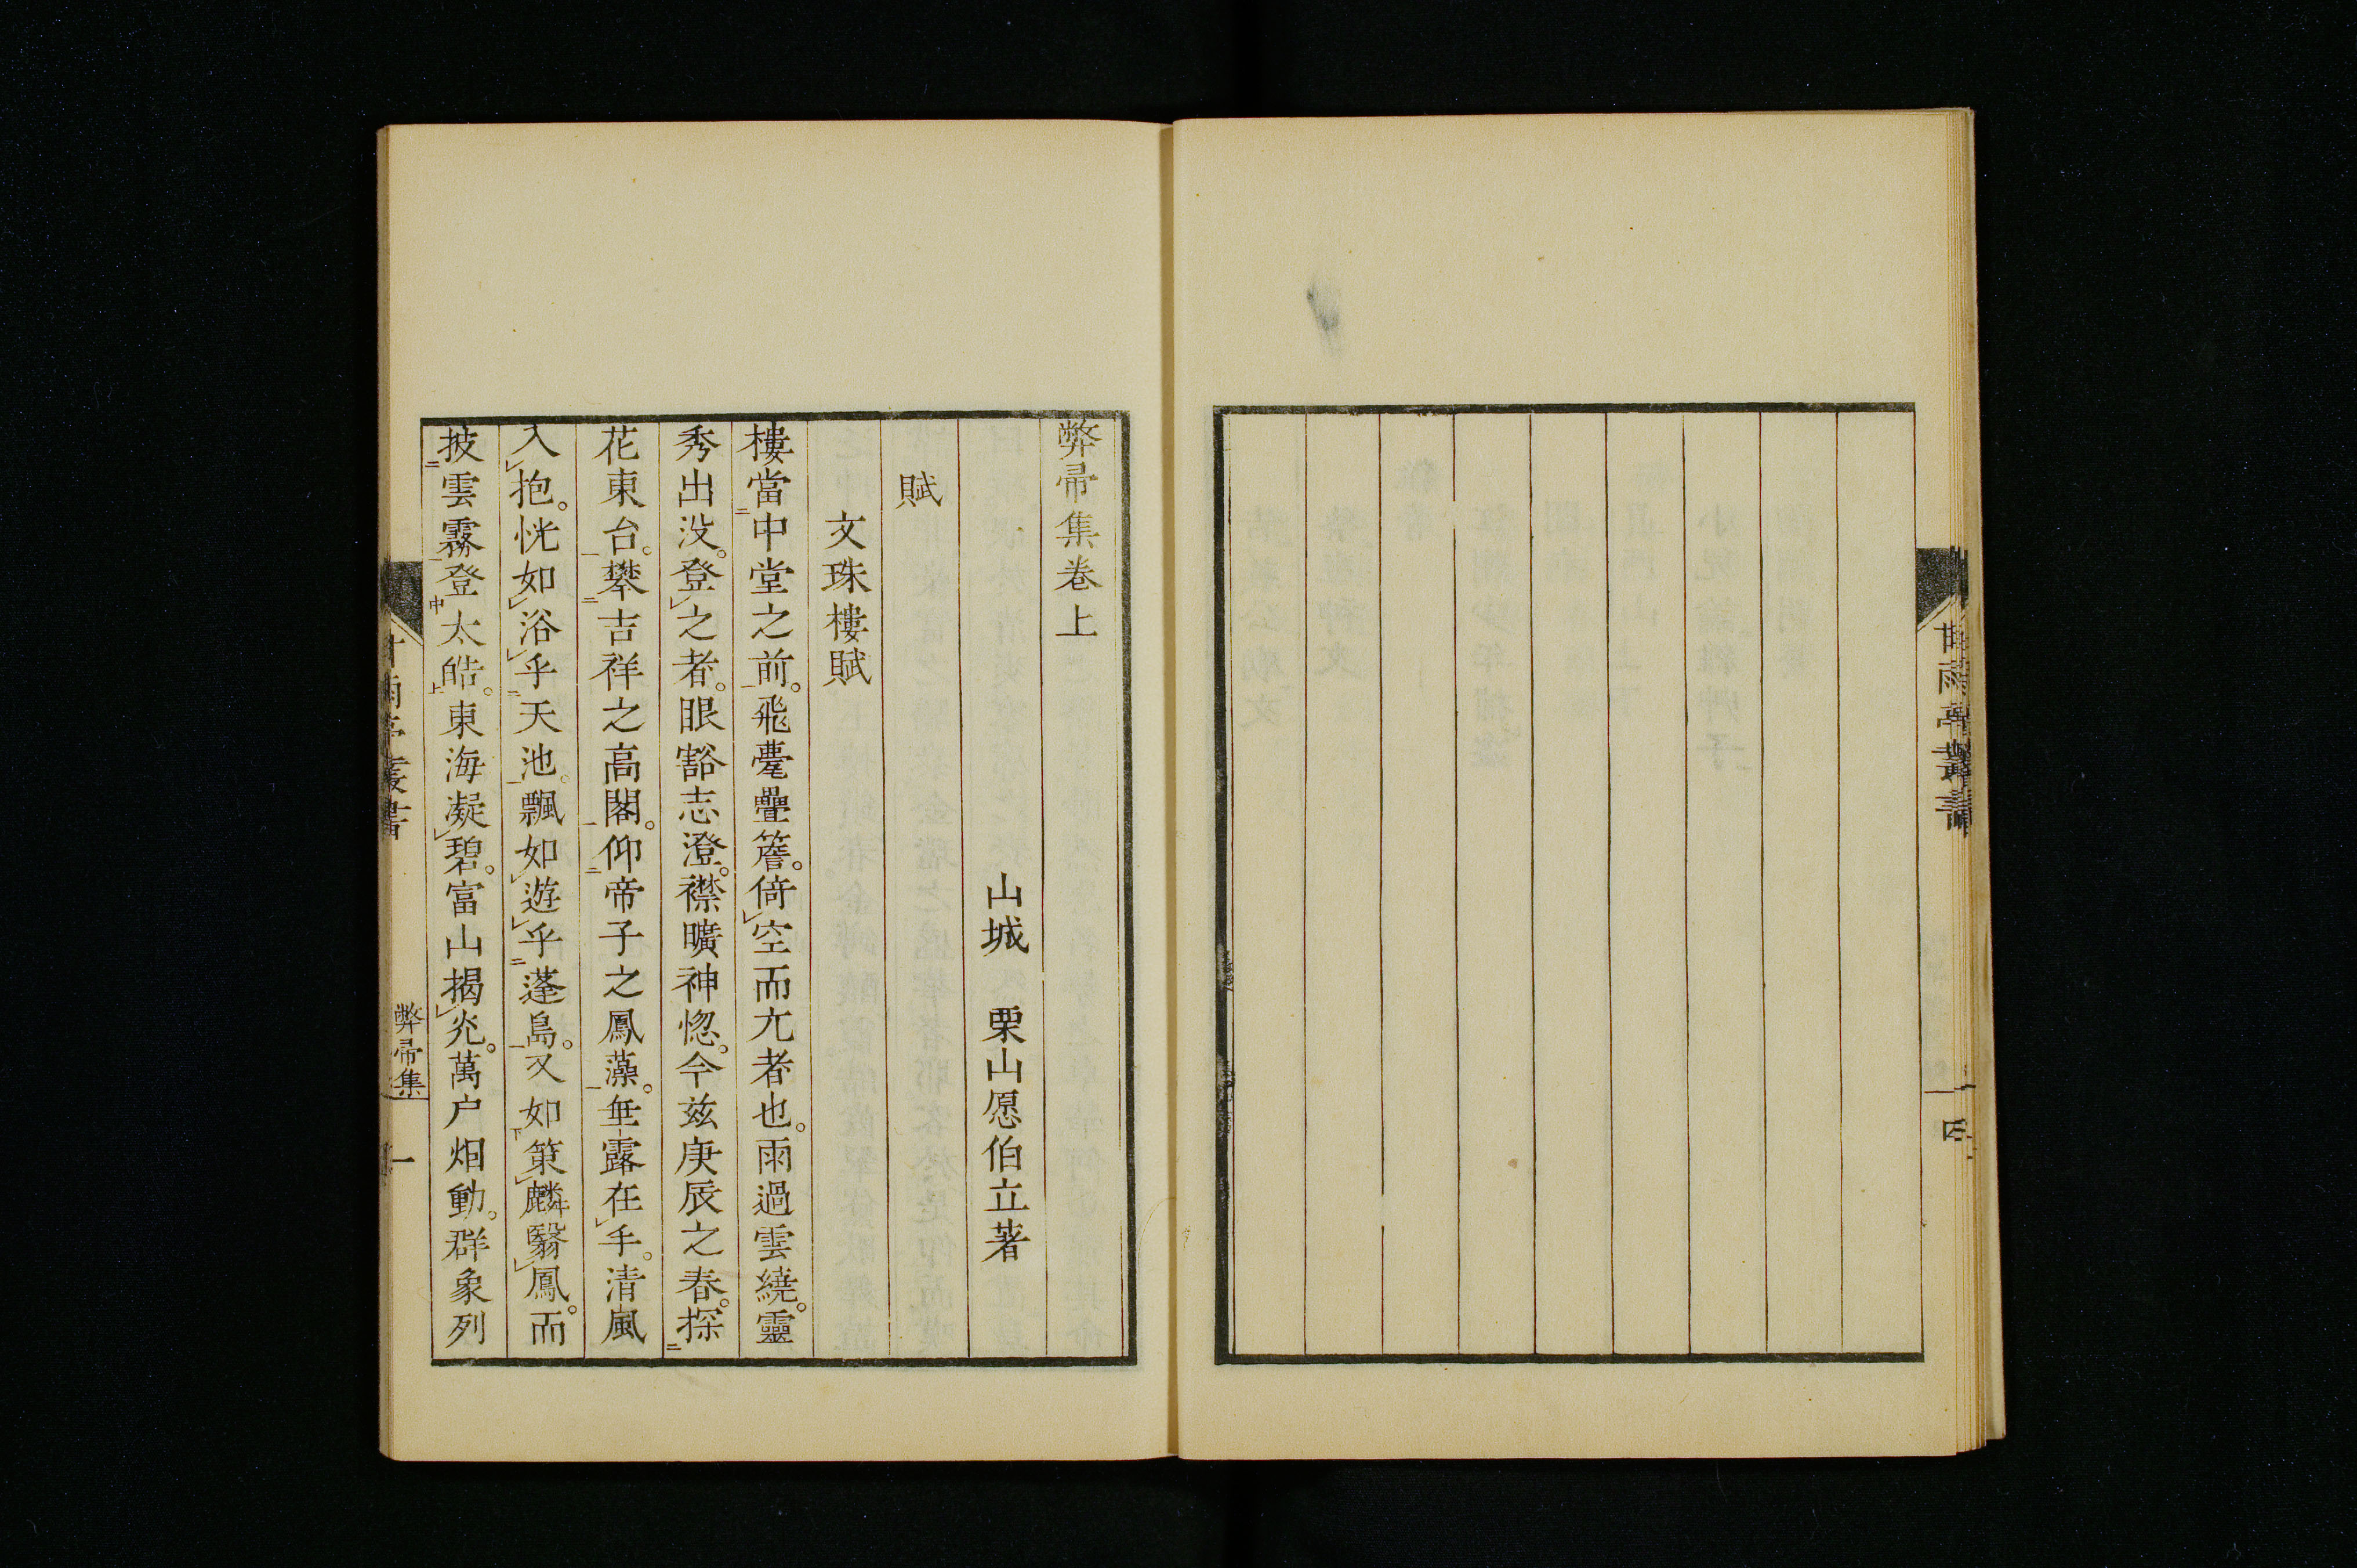 甘雨亭叢書
四
弊帚集卷上
山城　栗山愿伯立著
賦
文珠樓賦
樓當中堂之前。飛甍疊簷。倚空而亢者也。雨過雲繞。靈
秀出没。登之者。眼豁志澄。襟曠神惚。今兹庚辰之春。探
花東台。攀吉祥之高閣。仰帝子之鳳藻。垂露在手。清風
入抱。恍如浴乎天池。飄如遊乎蓬島。又如策麟翳鳳。而
披雲霧登太皓。東海凝碧。富山揭光。萬户烟動。群象列
甘雨亭叢書
弊帚集
一